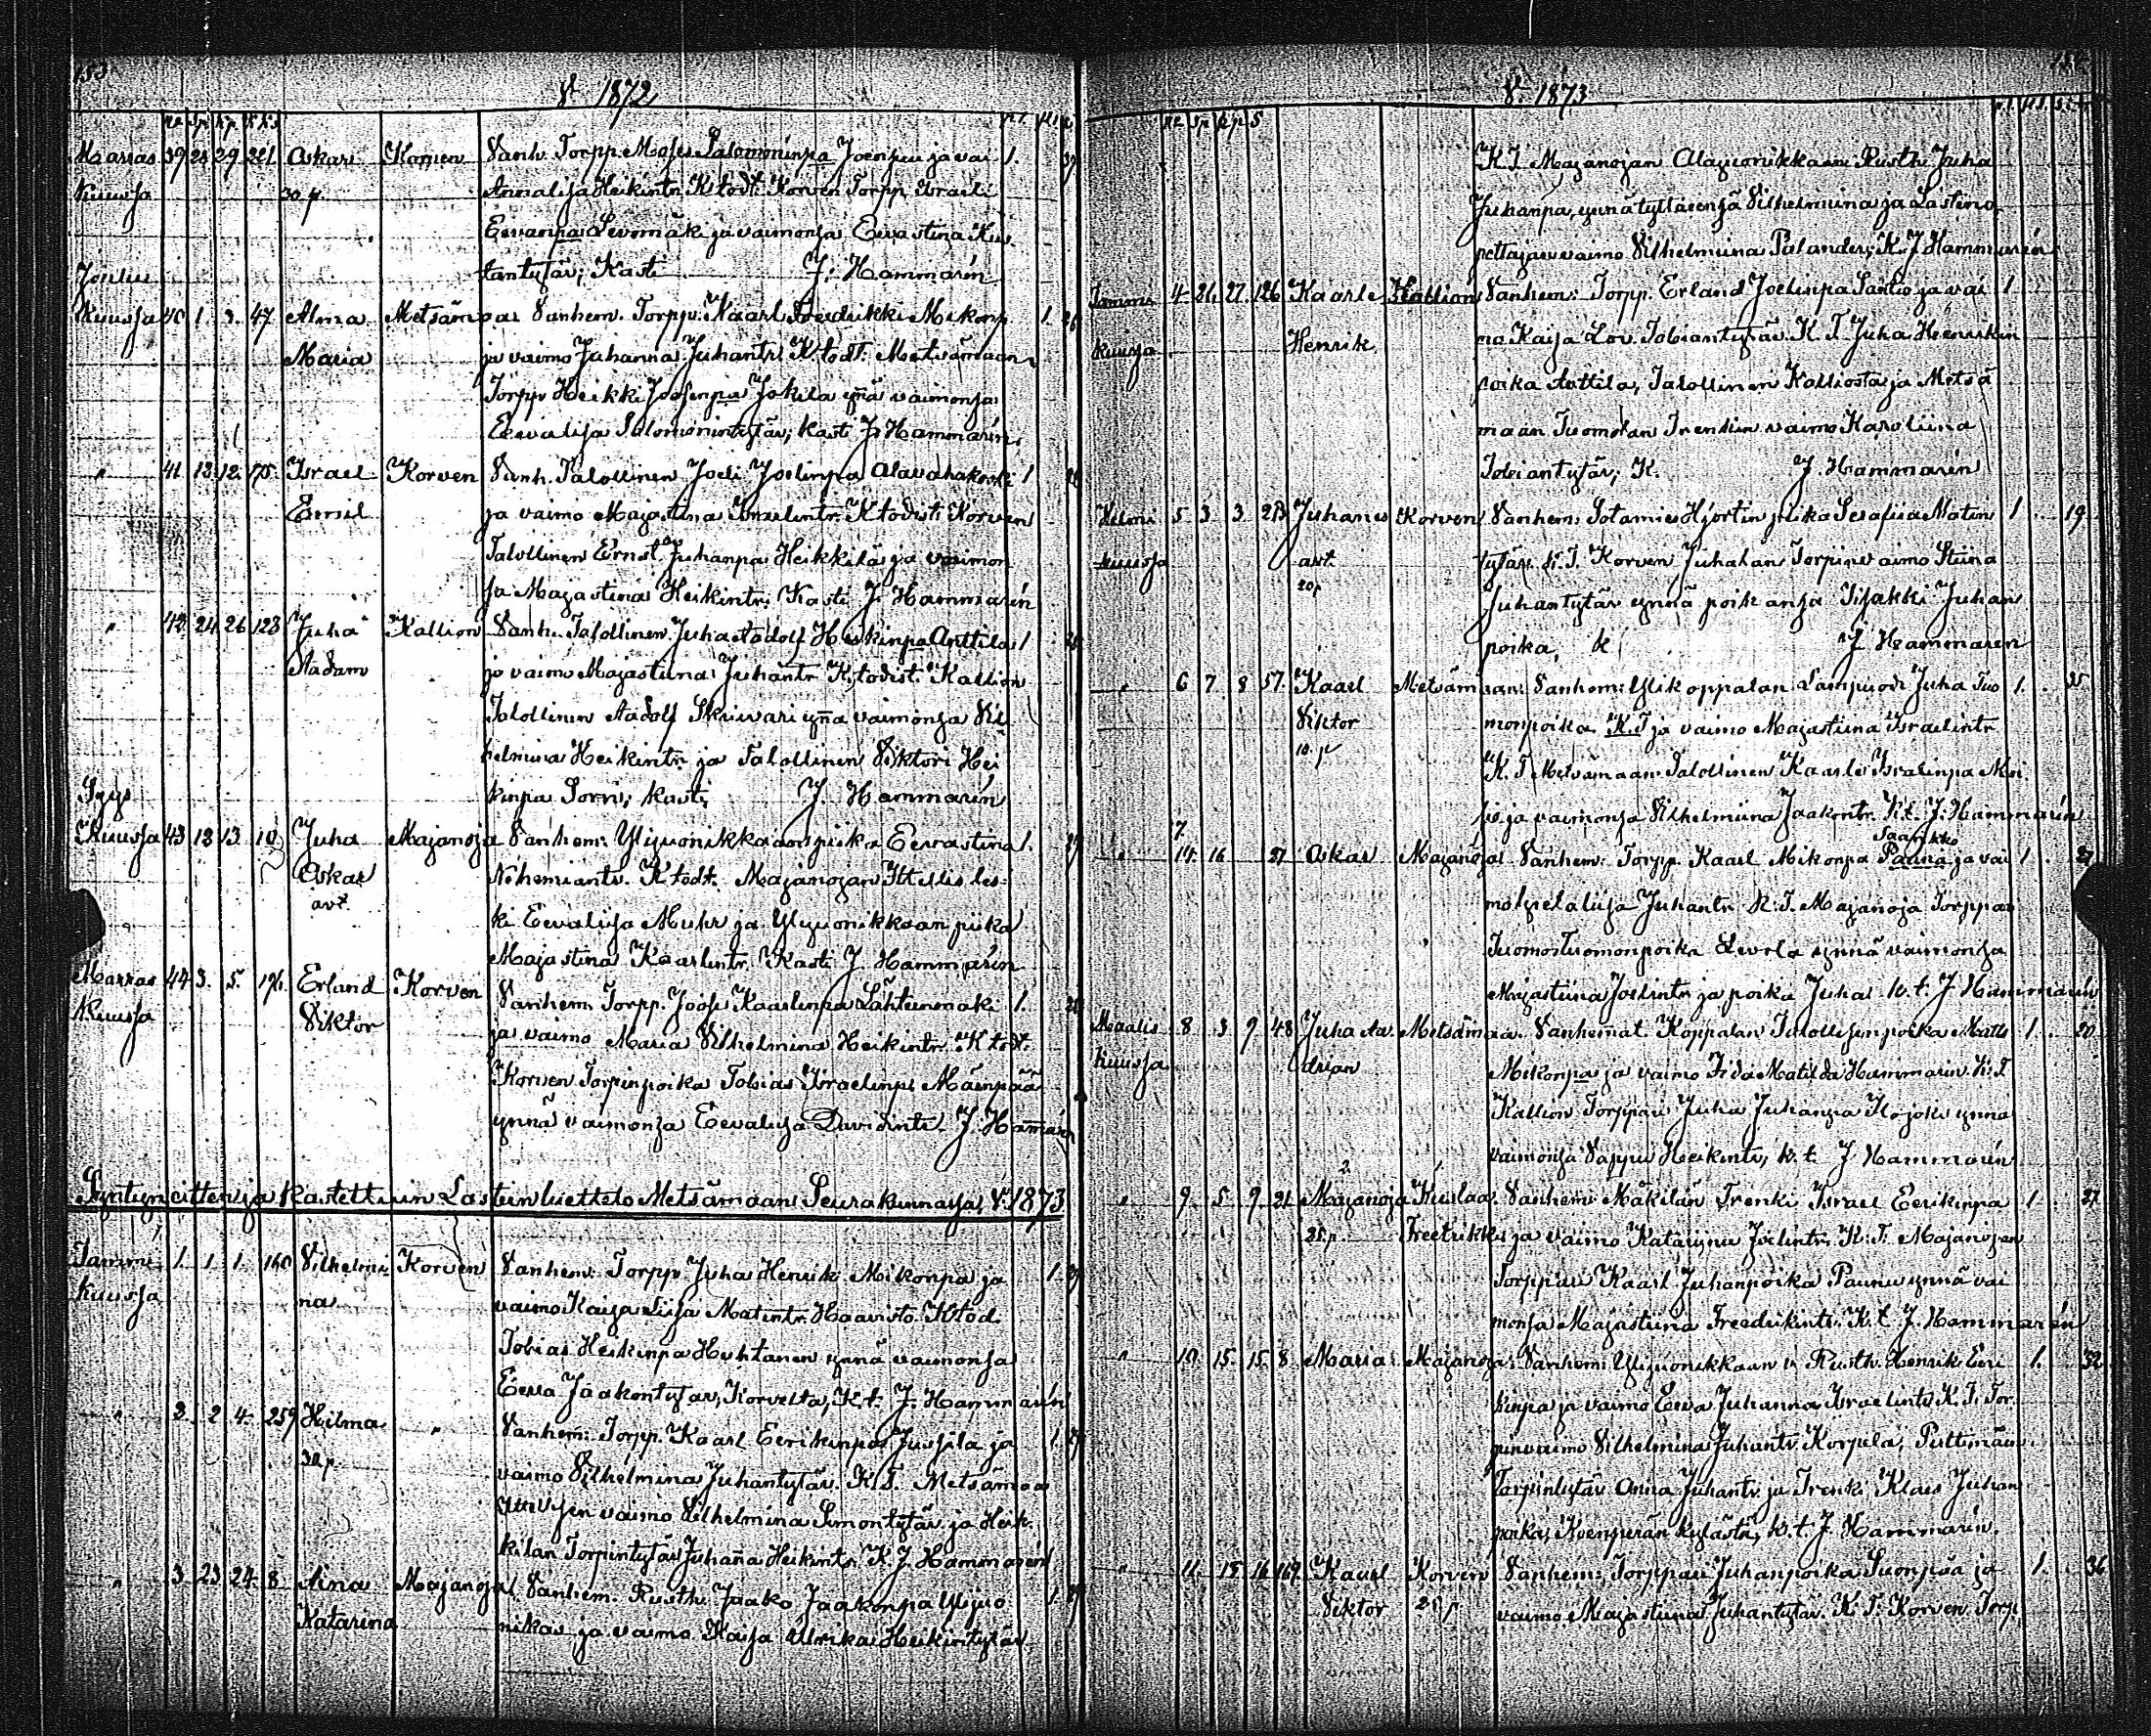 153
V. 1872
Marras 39 28 29 221 Askari Korven Vanh. Torpp. Moses Salomoninpa Joenpuu ja vai 1. 39
Kuussa 30 p. Annaliisa Heikintr. K todt. Korven Torpp. Israeli
Eevanpa Levomäki ja vaimonsa Eevastina Kus
Joulu tantytär; Kasti J. Hammarén
Kuussa 40 1. 3. 47 Alma Metsämaa Vanhem. Torppr. Kaarl Fredrikki Mikonp. 1.
Maria ja vaimo Juhanna Juhantr. K todt. Metsämaan
Torpp. Heikki Joosenpa Jokila ynä vaimonsa
Eevaliisa Salomonintytär; kasti J. Hammarén.
" 41 12 12 75. Israel Korven Vanh. Talollinen Joeli Joelinpa Alavahakoski 1
Emil ja vaimo Majastina Israelintr. K todisti Korven
Talollinen Ernst Juhanpa Heikkilä ja vaimon
sa Majastina Heikintr. Kasti J. Hammarén
" 42 24 26 123 Juha Kallion Vanh. Talollinen Juha Aadolf Heikinpa Anttila 1
Aadam ja vaimo Majastiina Juhantr. K todist. Kallion
Talollinen Aadolf Skrivari ynä vaimonsa Vil
helmina Heikintr. ja Talollinen Viktori Hei
Syys kinpa Sorri; kasti J. Hammarén
Kuussa 43 12 13 10 Juha Majanoja Vanhem: Ylijuonikkaan piika Eevastina 1.
Oskar Nehemiantr. K todt. Majanojan Ittellis les
avt. ki Eevaliisa Muhr ja Ylijuonikkaan piika
Majastina Kaarlintr. Kasti J. Hammarén
Marras 44 3. 5. 196 Erland Korven Vanhem. Torpp. Joose Kaarlinpa Lähteenmäki 1.
Kuussa Viktor ja vaimo Maria Vilhelmina Heikintr. K todt.
Korven Torpinpoika Tobias Israelinp. Mäenpää
ynnä vaimonsa Eevaliisa Davidintr. J. Hamarén
Syntyneitten ja Kastettuin Lasten luettelo Metsämaan Seurakunnassa, V. 1873.
Tammi 1. 1 1. 160 Vilhelmi Korven Vanhem. Torpp. Juha Henrik Mikonpa ja 1.
kuussa na vaimo Kaisa Liisa Matintr. Haavisto. K tod.
Tobias Heikinpa Huhtanen ynnä vaimonsa
Eeva Jaakontytär, Korvelta, K.t. J. Hammarén
" 2. 2 4. 259 Hilma " Vanhem: Torpp. Kaarl Eerikinpa Jussila ja 1
30 p. vaimo Vilhelmina Juhantytär. K.T. Metsämaa
vaimo Vilhelmina Simontytär ja Heik
kilän Torpintytär Juhana Heikintr. K. J. Hammarén
" 3 23 24. 8 Aina Majanoja Vanhem. Rusth. Jaako Jaakonpa Ylijuo 1.
Katarina nikas, ja vaimo Kaisa Ulrika Heikintytär
V. 1873
K.T. Majanojan Alajuonikkaan Rusth. Juha
Juhanpa, ynnä tyttärensä Vilhelmiina ja Lasteno
pettajan vaimo Vilhelmiina Palander; K. J Hammarén
Tammi 4. 21. 27. 126 Kaarle Kallion Vanhem: Torpp. Erland Joelinpa Santio ja vai 1
kuussa Henrik mo Kaisa Lov. Tobiantytär. K T. Juha Henrikin
poika Anttila, Talollinen Kalliosta ja Metsä
maan Tuomolan Trenkin vaimo Karoliina
Tobiantytär; K. J Hammarén
Helmi 5 3 3 213 Juhanes Korven Vanhem: Sotamies Hjortin piika Serafiia Matin 1 19
kuussa avt tytär. K.T. Korven Juhalan Torpin vaimo Stiina
20 p Juhantytär ynnä poikansa Iisakki Juhan
poika, k J Hammarén
" 6 7 8 57. Kaarl Metsämaan: Vanhem: Ylikoppalan Lampuodi Juha Tuo 1. 35
Viktor monpoika K.T ja vaimo Majastiina Israelintr
10. p K. T Metsämaan Talollinen Kaarle Israelinpa
ja vaimonsa Vilhelmiina Jaakontr. K.t. J. Hammarén
7 14. 16 27 Oskar Majanoja Vanhem: Torpp. Kaarl Mikonpa Pauna Saarikko ja vai 1
mo Juhantr. K.T. Majanoja Torppar
Tuomos Tuomonpoika Levola ynnä vaimonsa
Majastiina Joelintr. ja poika Juha K.t. J. Hammarén
Maalis 8 3 9 48 Juha Aa. Metsämaa. Vanhemat Koppalan Talollisen poika Matts 1. 20
kuussa drian Mikonpa ja vaimo Fida Matilda Hammarén K.T
Kallion Torppari Juha Juhanpa Kojoki ynnä
vaimonsa Vappu Heikintr, k.t. J Hammarén
" 9. 5. 9. 21 Majanoja Kustaa Vanhem: Mäkilän Trenki Israel Eerikinpa 1. 27
25. p Freetrikki ja vaimo Katariina Joelintr. K.T. Majanojan
Torppari Kaarl Juhanpoika Paunu ynnä vai
monsa Majastiina Freedrikintr. K.t. J. Hammarén
" 10. 15. 15 8 Maria Majanoja Vanhem: Ylijuonikkaan v. Rusth. Henrik Eeri 1. 32
kinpa ja vaimo Eeva Juhanna Israelintr. K.T. Tor
pinvaimo Vilhelmina Juhantr. Korpela,
Torpintytär Anna Juhantr. ja Trenki Klaus Juhan
poika, Koenperän kylästä, k.t. J. Hammarén.
" 11. 15 16 169 Kaarl Korven Vanhem: Torppari Juhanpoika Suonpää ja 1. 36
Viktor 25 p vaimo Majastiina Juhantytär. K T. Korven Torp